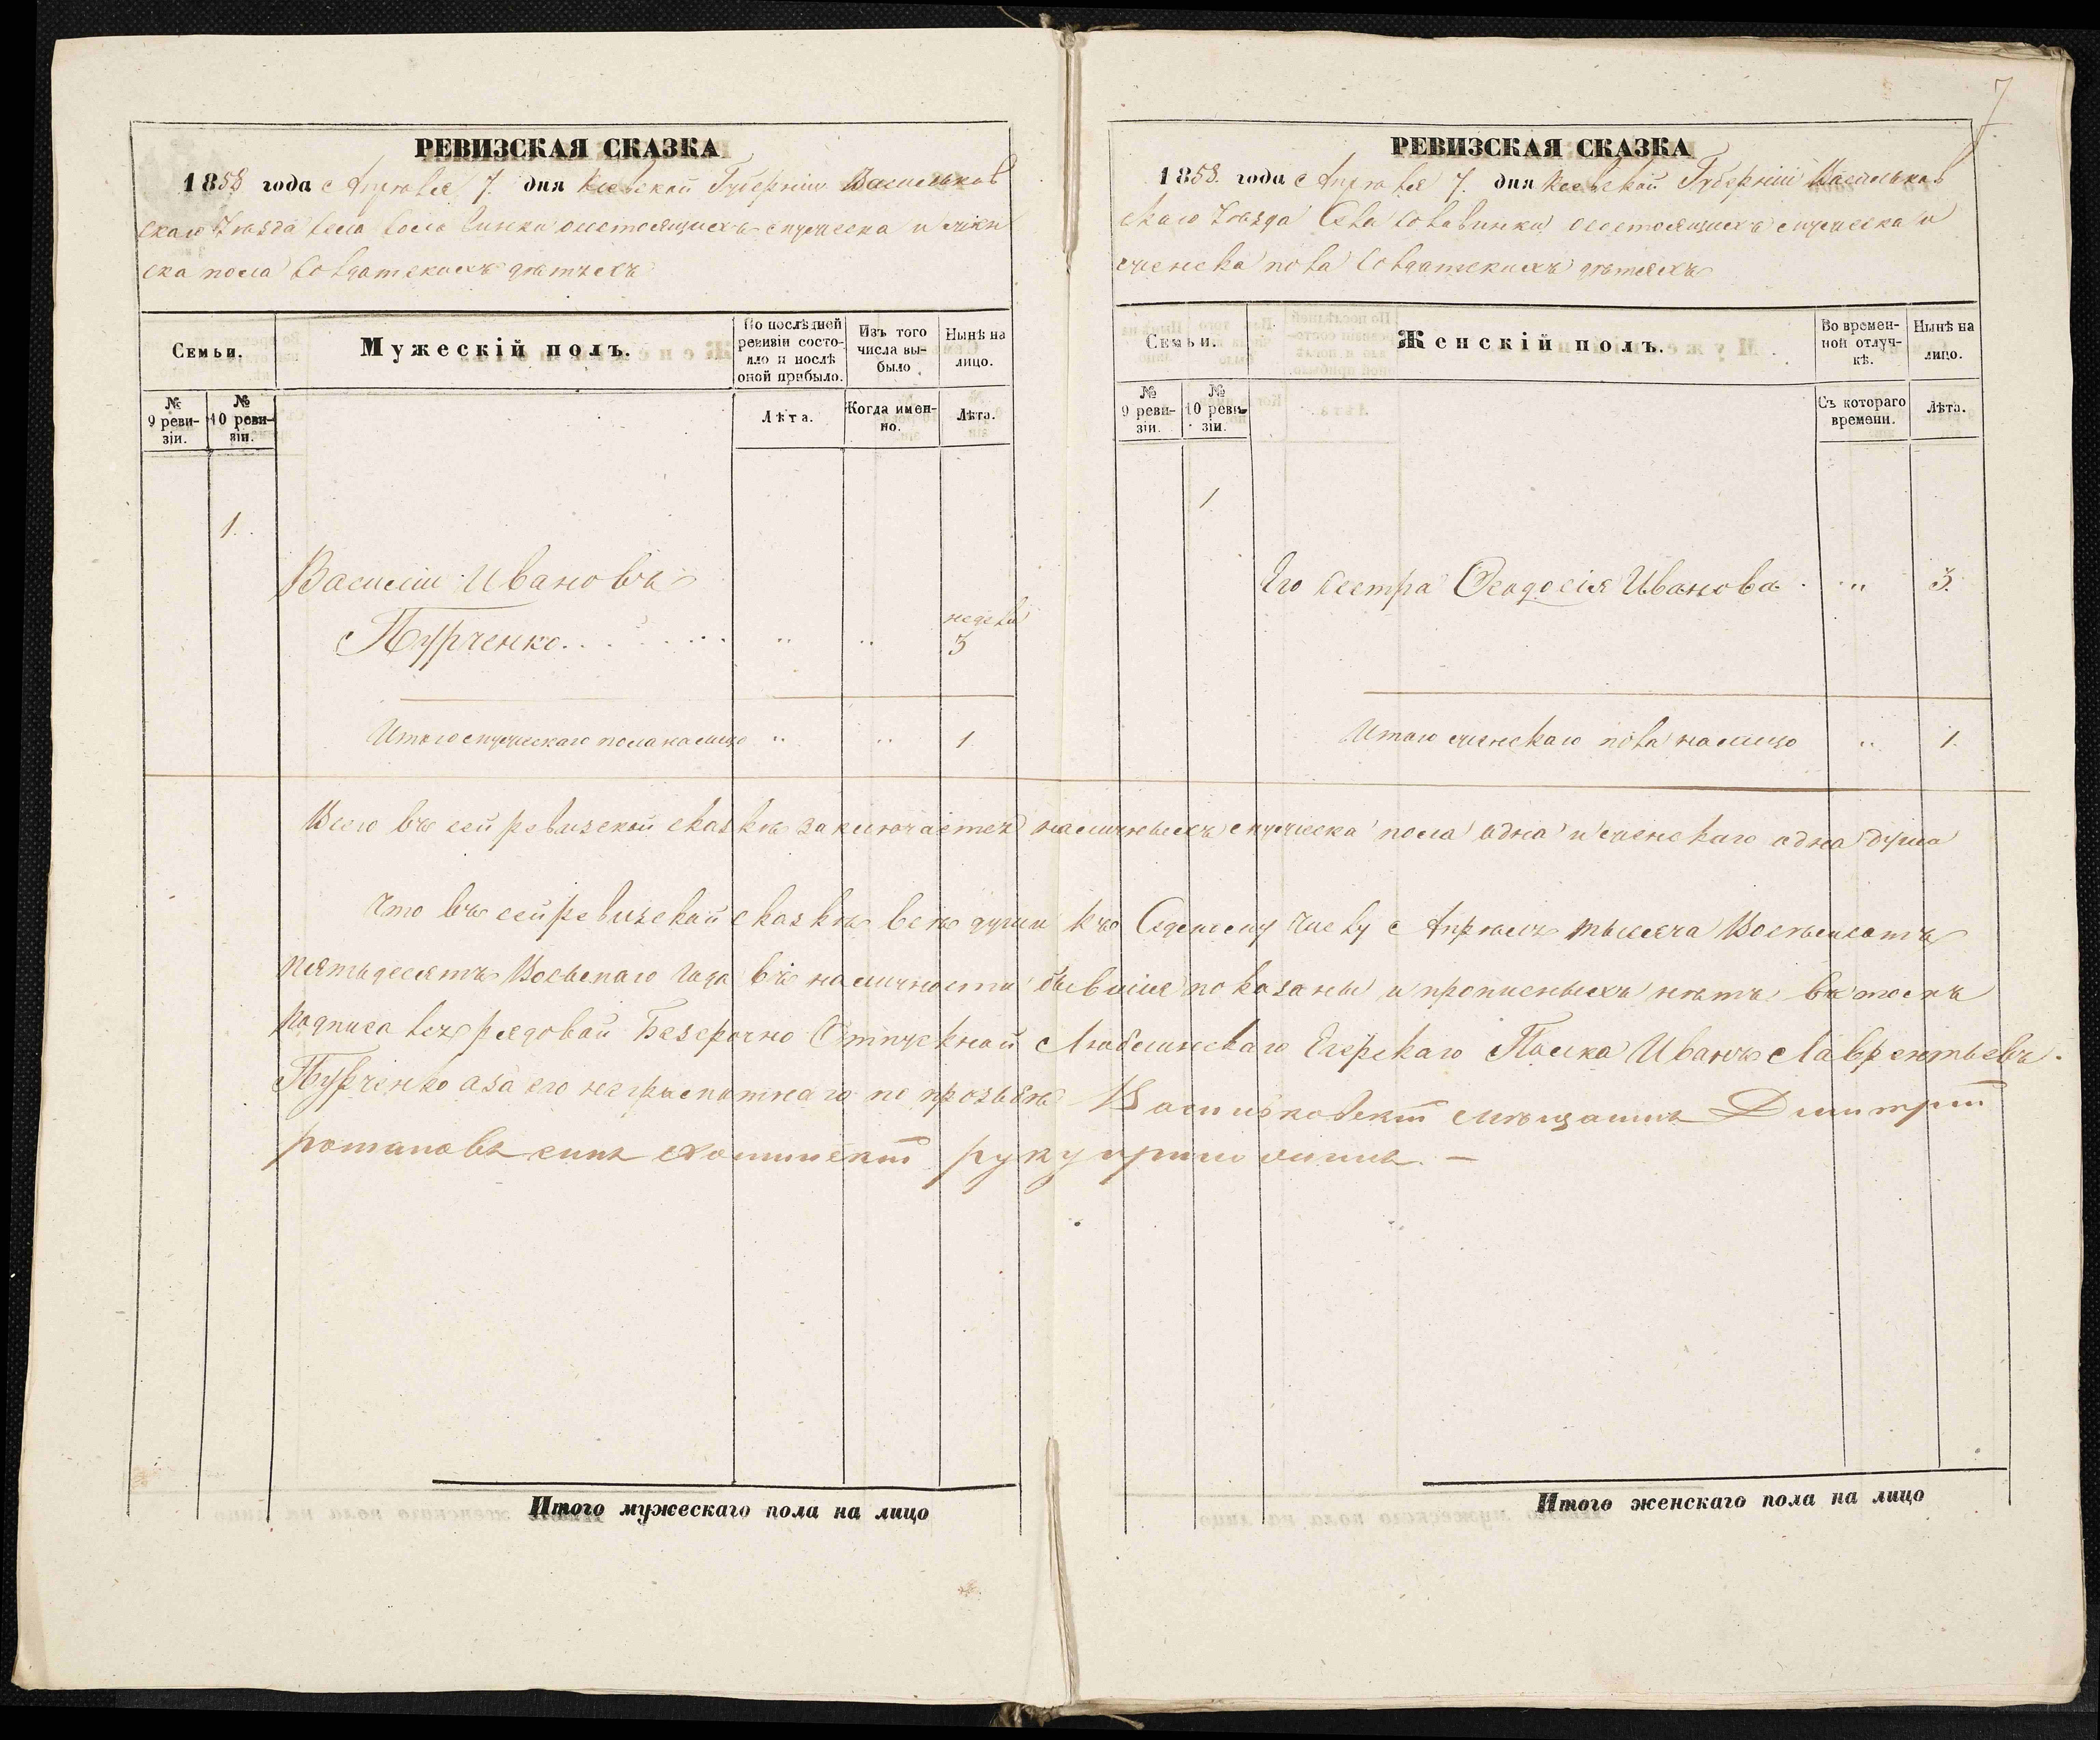 7
РЕВИЗСКАЯ СКАЗКА
1858 года Апреля 7. дня Кіевской Губерніи Васильков
скаго Уѣзда Села состоящихъ мужеска и жен
ска пола Солдатскихъ дѣтяхъ
Семьи.
Мужескій полъ.
По послѣдней ревизіи состояло и послѣ оной прибыло.
Изъ того числа выбыло
Нынѣ на лицо.
№ 9 ревизіи.
№ 10 ревизіи.
Лѣта.
Когда именно.
Лѣта.
1.
Василій Ивановъ
недели
Пурченко . . . . . . . " " 3
Итого мужескаго пола налицо " " 1
РЕВИЗСКАЯ СКАЗКА
1858. года Апрѣля 7. дня Кіевской Губерніи Васильков
скаго Уѣзда Села состоящихъ мужеска и
женска пола Солдатскихъ дѣтяхъ
Семьи.
Женскій полъ.
Во временной отлучкѣ.
Нынѣ на лицо.
№ 9 ревизіи.
№ 10 ревизіи.
Съ котораго времени.
Лѣта.
1
Его Сестра Феодосія Иванова . " 3.
Итого женскаго пола налицо " 1.
Всего въ сей ревизской сказкѣ заключается наличныхъ мужеска пола одна и женскаго одна душа
Что въ сей ревизской сказкѣ всѣ души къ Седмому числу Апрѣля тысяча Восемьсотъ
пятьдесятъ Восьмаго Года въ наличности бывшіе показаны и прописныхъ нѣтъ въ томъ
подписался рядовой Безсрочно Отпускной Люблинскаго Егерскаго Полка Иванъ Лаврентьевъ
Пурченко а за его неграмотнаго по прозьбѣ Васильковскій мѣщанинъ Дмитрій
романовъ сынъ руку приложилъ. —
Итого мужескаго пола на лицо
Итого женскаго пола на лицо